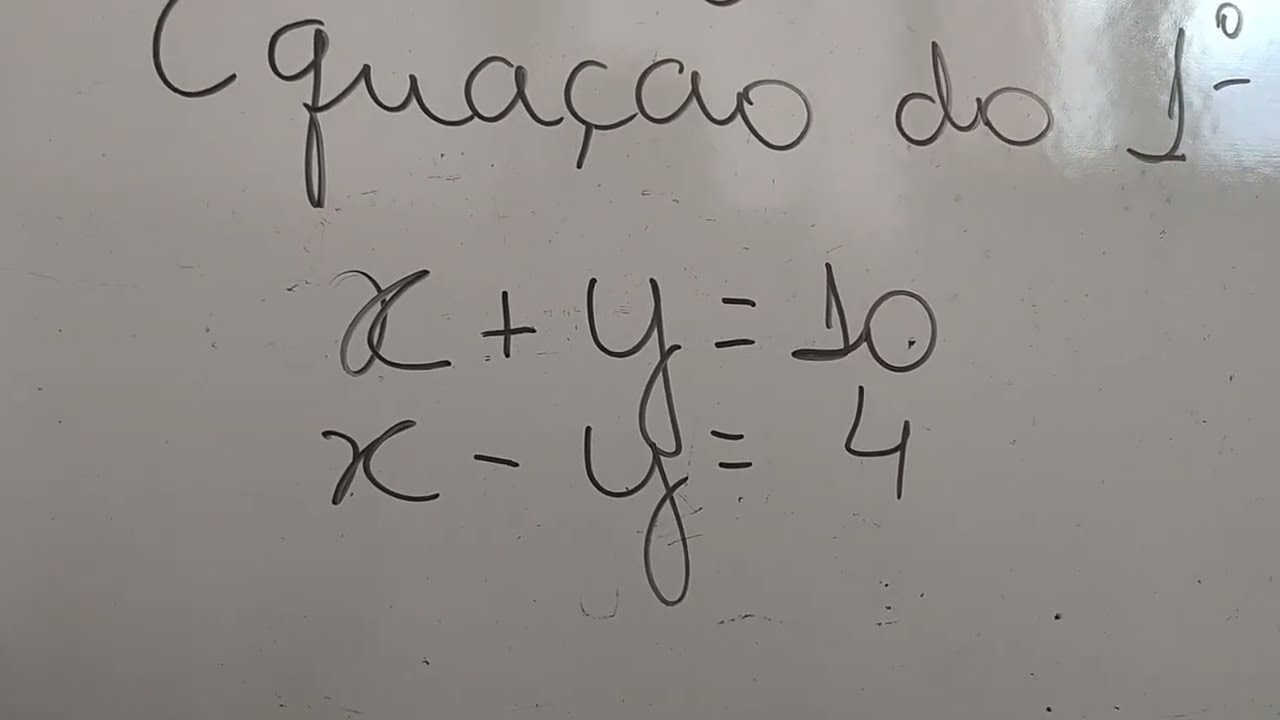 Equação do 1º
x + y = 10
x - y = 4